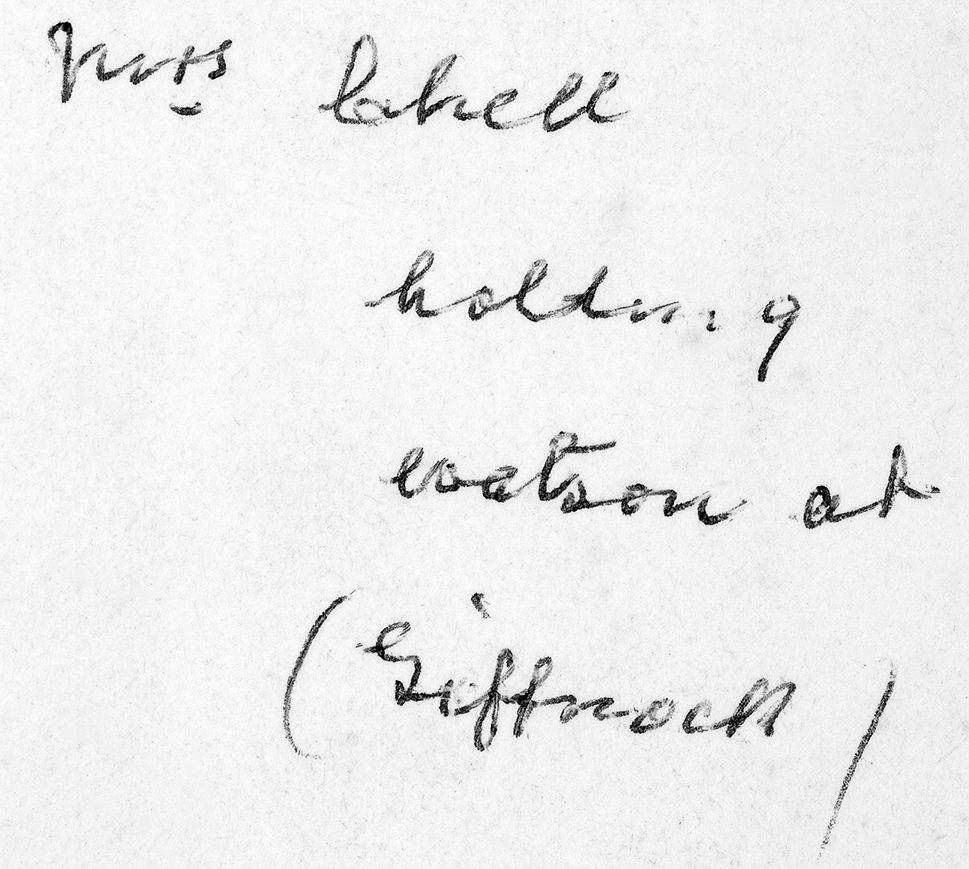 Mrs
holding
watson at
(Giffnock)